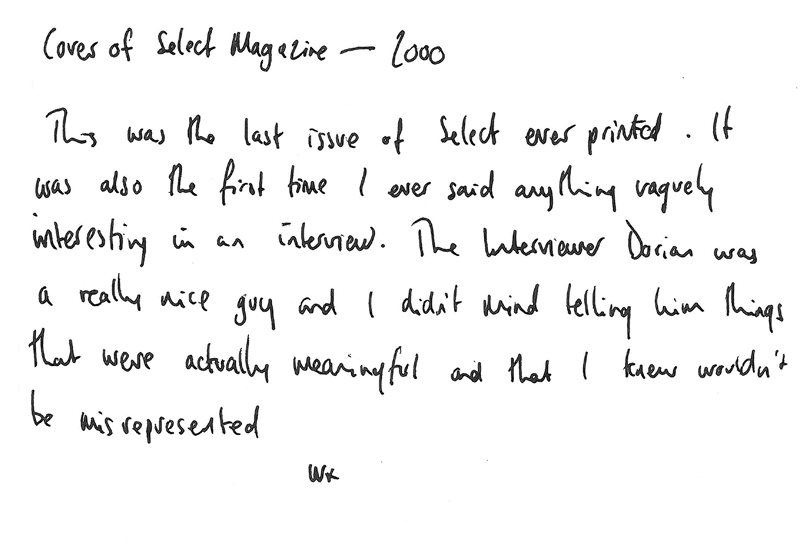 Cover of Select Magazine — 2000
This was the last issue of Select ever printed. It
was also the first time I ever said anything vaguely
interesting in an interview. The Interviewer Dorian was
a really nice guy and I didn't mind telling him things
that were actually meaningful and that I knew wouldn't
be misrepresented
Wx